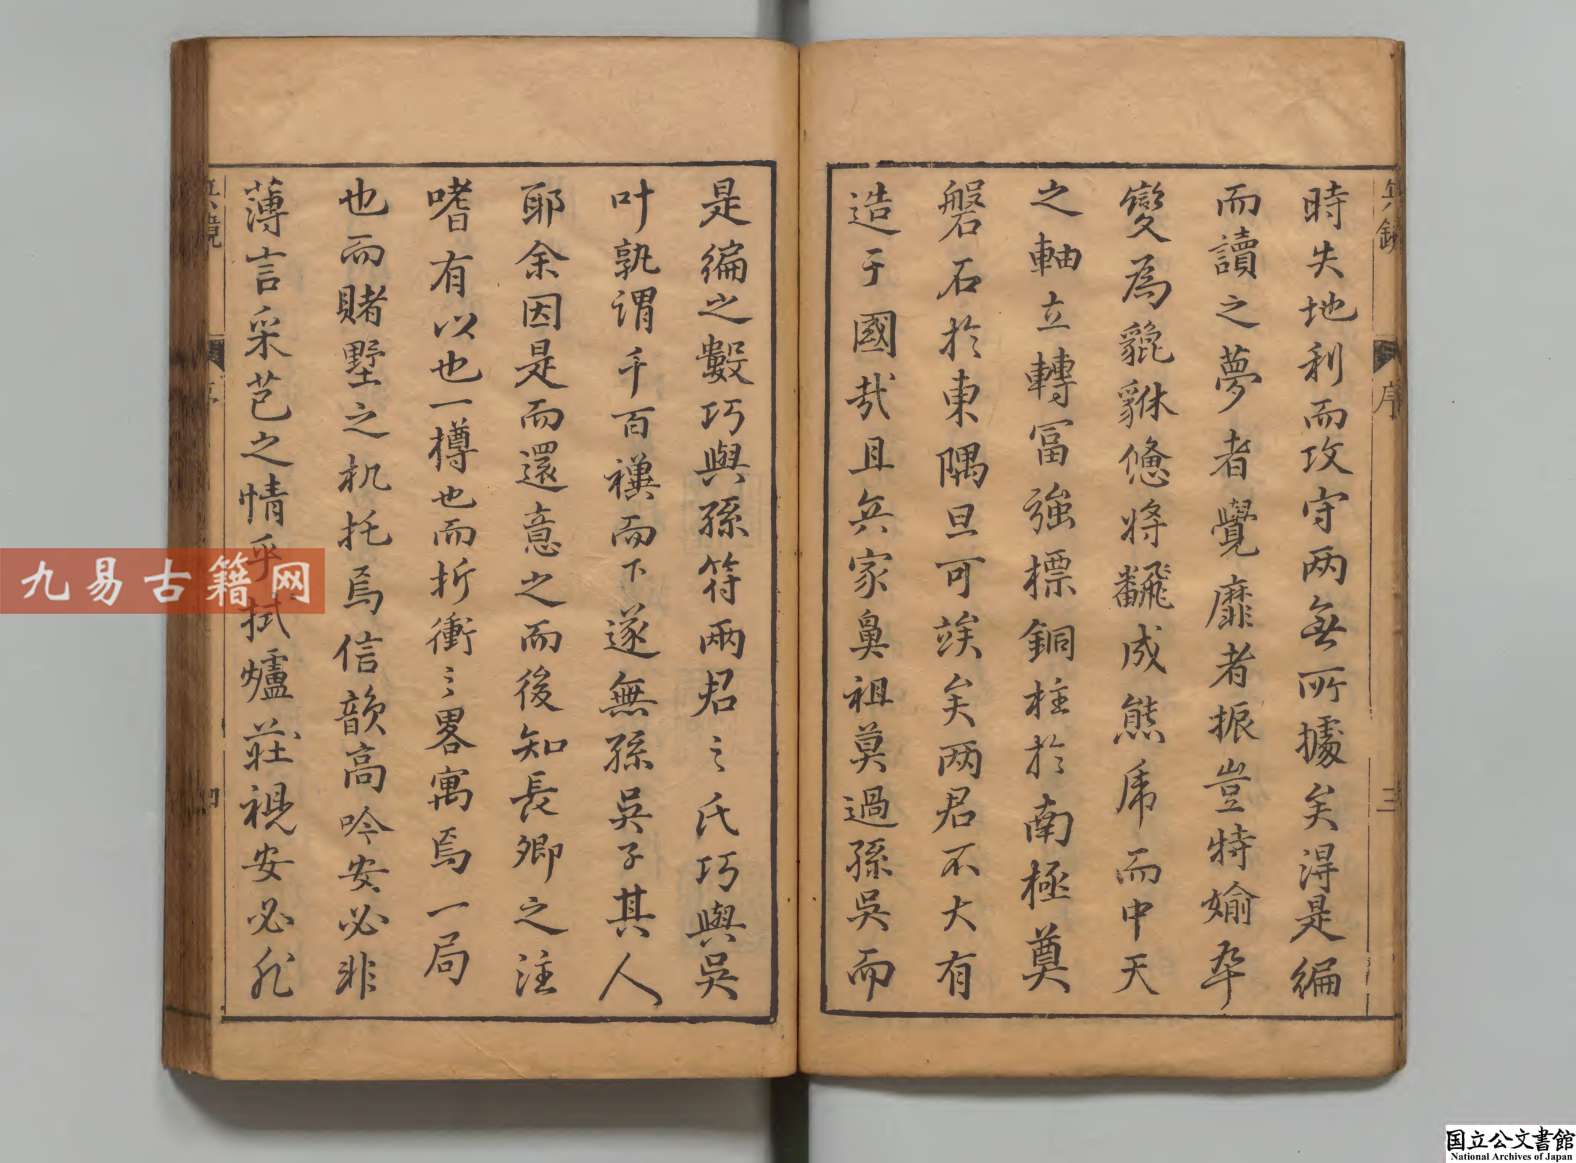 兵鏡
序
三
時失地利而攻守两無所據矣得是編
而讀之夢者覺靡者振豈特媮卒
變為貔貅憊將飜成熊席而中天
之軸立轉冨強標銅柱於南極奠
磐石於東隅旦可竢矣两君不大有
造于國哉且兵家鼻祖莫過孫吳而
是編之數巧與孫符兩君之氏巧與吳
叶孰谓千百禩而下遂無孫吳子其人
耶余因是而還意之而後知長卿之注
嗜有以也一樽也而折衝之畧寓焉一局
也而賭墅之机托焉信韻高吟安必非
薄言采芑之情乎拭爐莊視安必非
兵鏡
序
四
九易古籍网
国立公文書館
National Archives of Japan